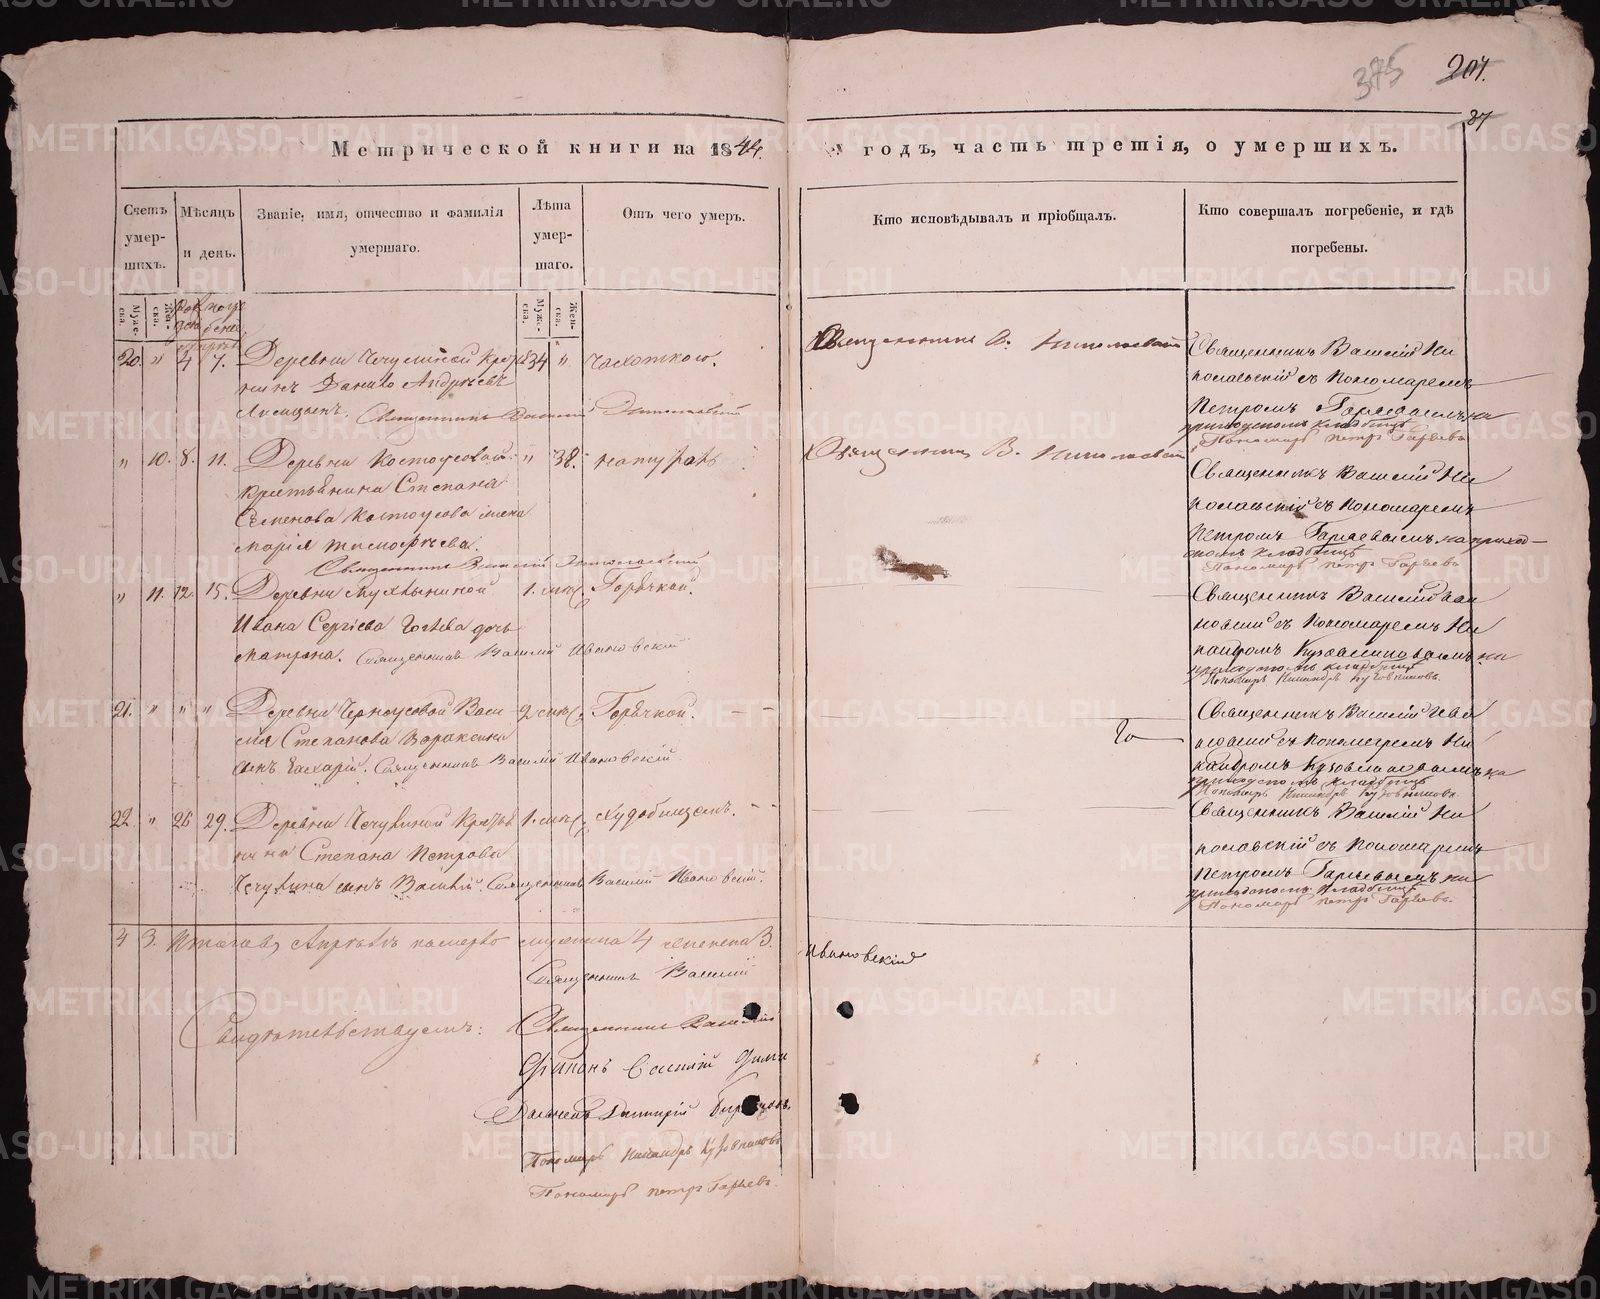 375 204.
37
Метрической книги на 1844. годъ, часть третія, о умершихъ.
Счетъ умер- шихъ.
Мѣсяцъ и день.
Званіе, имя, отчество и фамилія умершаго.
Лѣта умер- шаго.
Отъ чего умеръ.
Кто исповѣдывалъ и пріобщалъ.
Кто совершалъ погребеніе, и гдѣ погребены.
Муже- ска.
Жен- ска.
Муже- ска.
Жен- ска.
20. „ 4 7. Деревни 34 „ Чахоткою.
Данило Андрѣевъ
Лисицынъ. Священникъ Василій Николаевскій
Священникъ В. Николаевскій
Священникъ Василій Ни
колаевскій съ Пономаремъ
Петромъ Гаряевымъ на
приходскомъ кладбищѣ
Пономарь Петръ Гаряевъ
„ 10. 8. 11. Деревни Костоусовой „ 38.
Крестьянина Степана
Семенова Костоусова жена
Марія Тимофѣева.
Священникъ Василій Николаевскій
Священникъ В. Николаевскій
Священникъ Василій Ни
колаевскій съ Пономаремъ
Петромъ Гаряевымъ на приход-
скомъ кладбищѣ
Пономарь Петръ Гаряевъ
„ 11. 12. 15. Деревни 1. мѣс. Горячкой.
Ивана Сергіева дочь
Матрона. Священникъ Василій Ивановскій
Священникъ Василій Ива
новскій съ Пономаремъ Ни
кандромъ Кузовниковымъ на
приходскомъ кладбищѣ
Пономарь Никандръ Кузовниковъ.
21. „ „ „ Деревни Черноусовой Васи 2 мѣс. Горячкой.
лія Степанова Вораксина
сынъ Захарій. Священникъ Василій Ивановскій.
Священникъ Василій Ива
новскій съ Пономаремъ Ни
кандромъ Кузовниковымъ на
приходскомъ кладбищѣ
Пономарь Никандръ Кузовниковъ.
22. „ 26 29. Деревни Чечулиной Крестья 1. мѣс.
нина Степана Петрова
Чечулина сынъ Василій. Священникъ Василій Ивановскій.
Священникъ Василій Ни
колаевскій съ Пономаремъ
Петромъ Гаряевымъ на
приходскомъ кладбищѣ
Пономарь Петръ Гаряевъ.
4 3. Итого въ Апрѣлѣ померло мужеска 4 женска 3.
Священникъ Василій Ивановскій
Свидѣтельствуемъ: Священникъ Василій
Діаконъ Василій
Дьячекъ Дмитрій
Пономарь Никандръ Кузовниковъ
Пономарь Петръ Гаряевъ.
METRIKI.GASO-URAL.RU